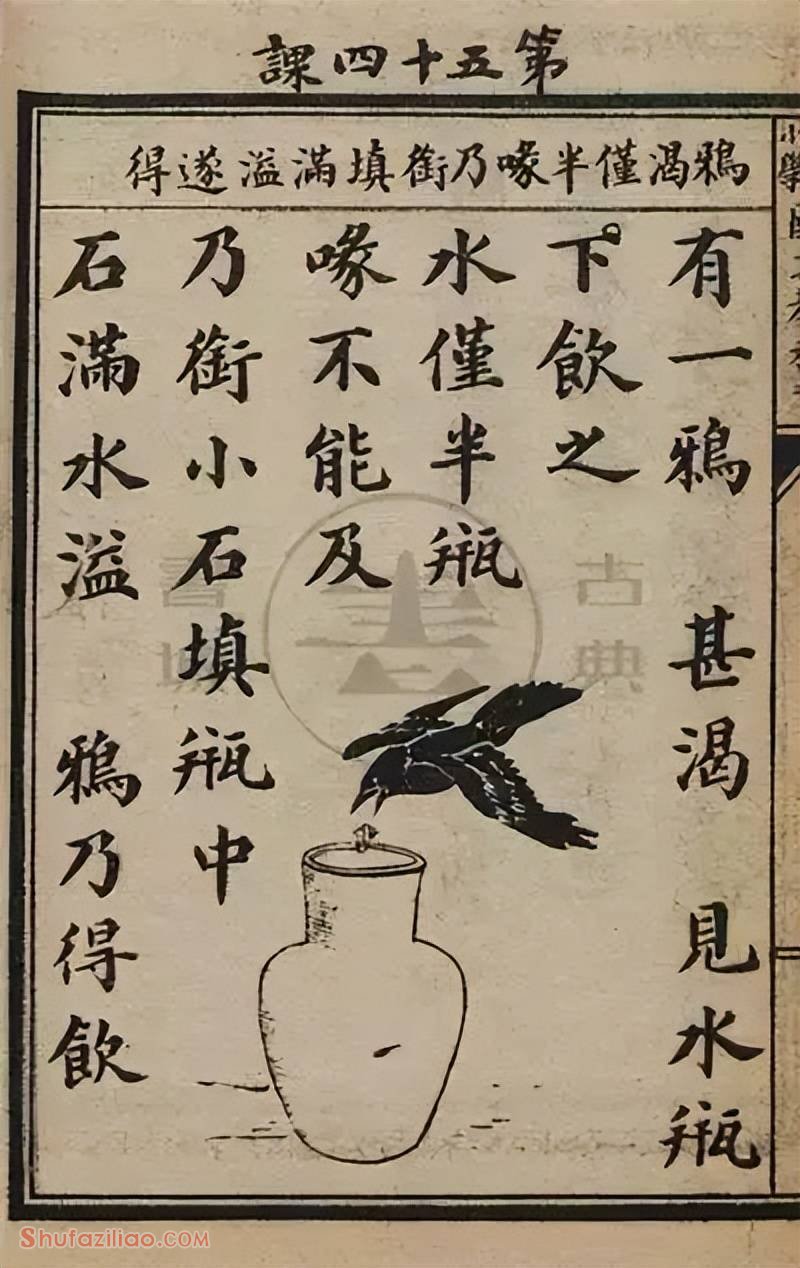 第五十四課
鴉渴僅半喙乃銜填滿溢遂得
有一鴉 甚渴 見水瓶
下飲之
水僅半瓶
喙不能及
乃銜小石填瓶中
石滿水溢 鴉乃得飲
古典
Shufaziliao.com